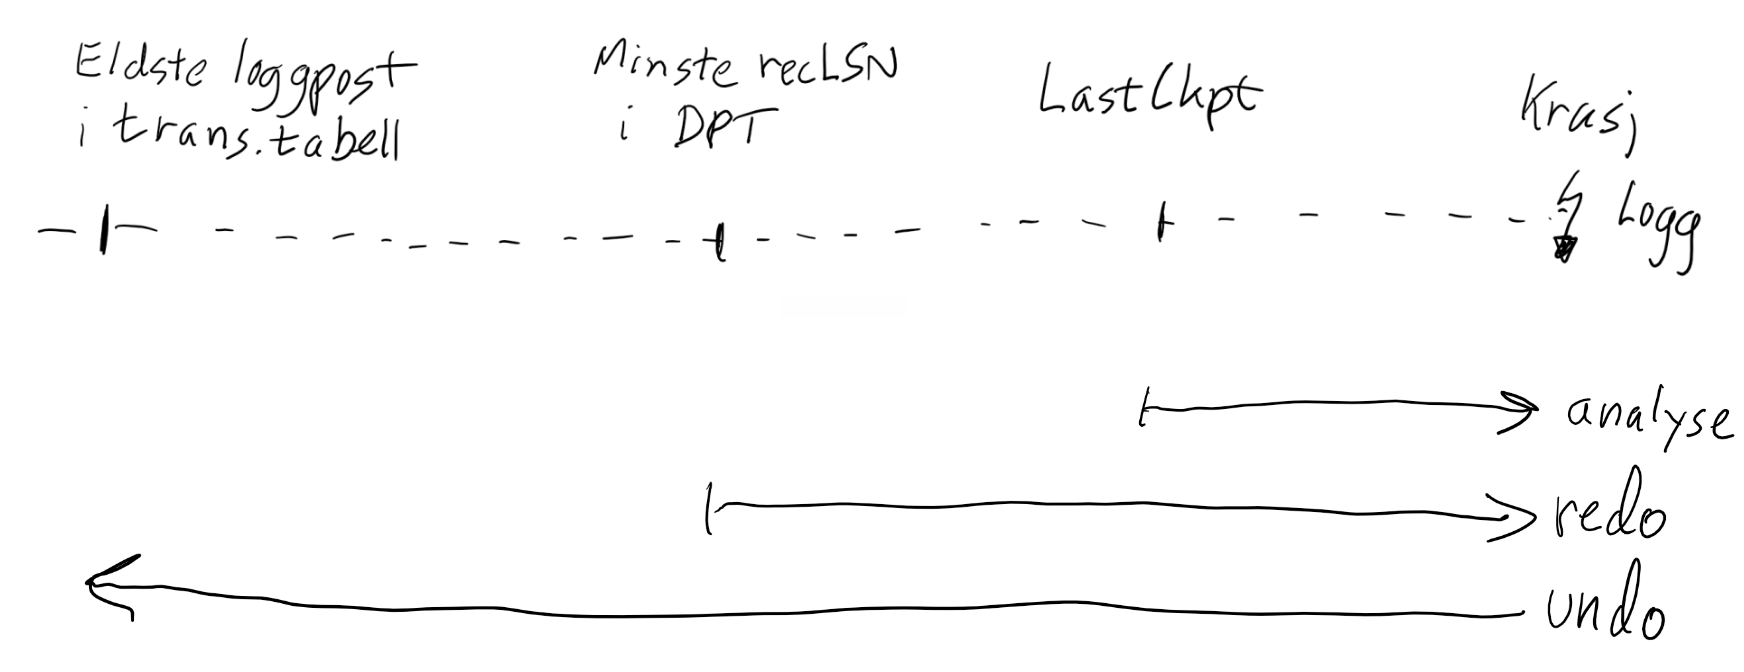 Eldste loggpost
i trans.tabell
Minste recLSN
i DPT
LastCkpt
Krasj
Logg
analyse
redo
undo